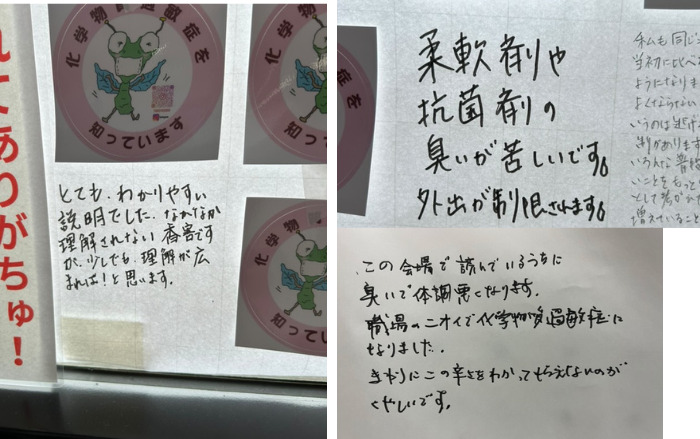 れてありがちゅ!
化学物質過敏症を
知っています
化学物
知ってい
化学物
知ってい
とても、わかりやすい
説明でした。なかなか
理解されない香害です
が、少しでも、理解が広
まれば!と思います。
症を
柔軟剤や
抗菌剤の
臭いが苦しいです。
外出が制限されます。
私も同じ
当初に比べ
ようになりま
よくならない
いうのは
がありま
いろんな
いことをもっ
として
増えていること
この会場で読んでいるうちに
臭いで体調悪くなります。
職場のニオイで化学物質過敏症に
なりました。
まわりにこの辛さをわかってもらえないのが
くやしいです。